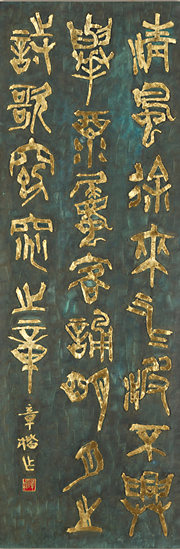 清風徐來水波不興
舉酒屬客誦明月之
詩歌窈窕之章